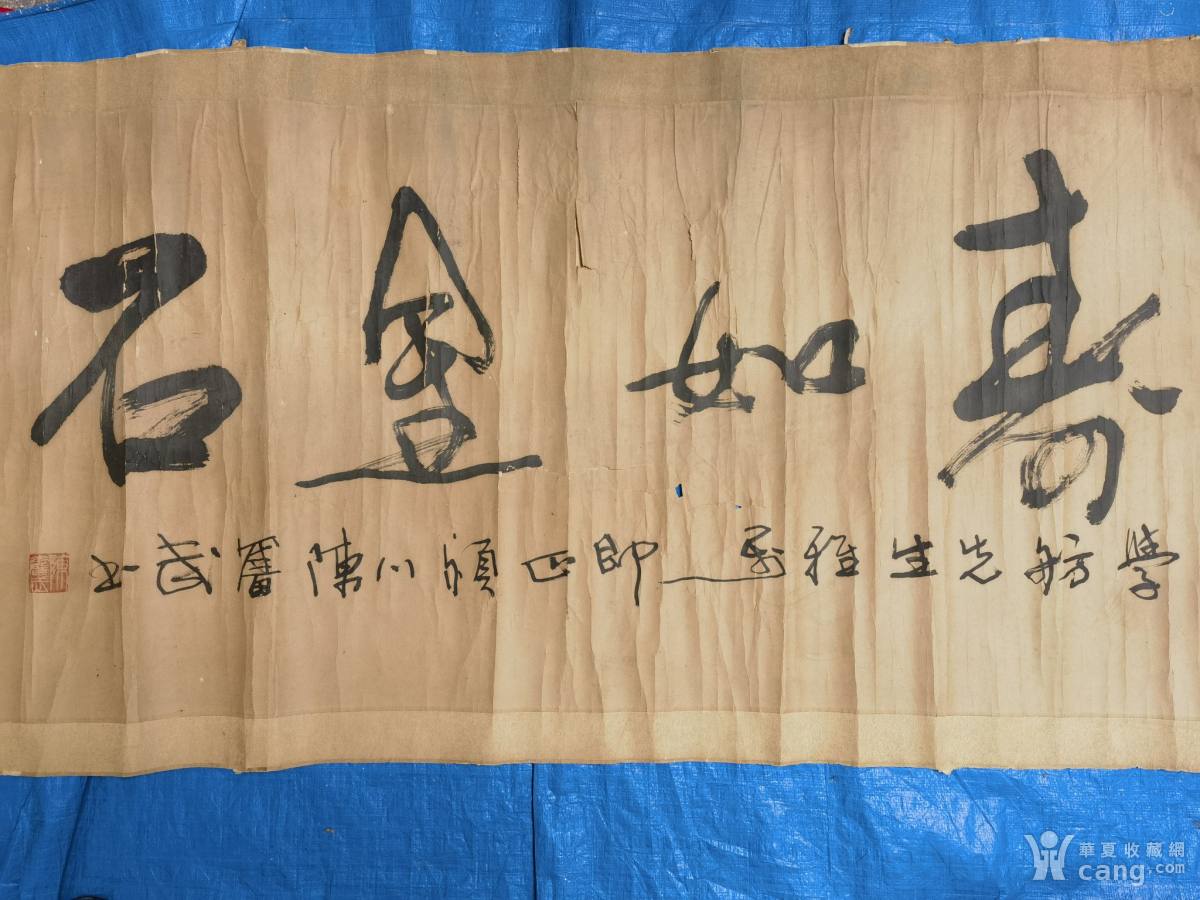 壽如金石
學舫先生雅屬即正潁川陳蕃武書
華夏收藏網
cang.com